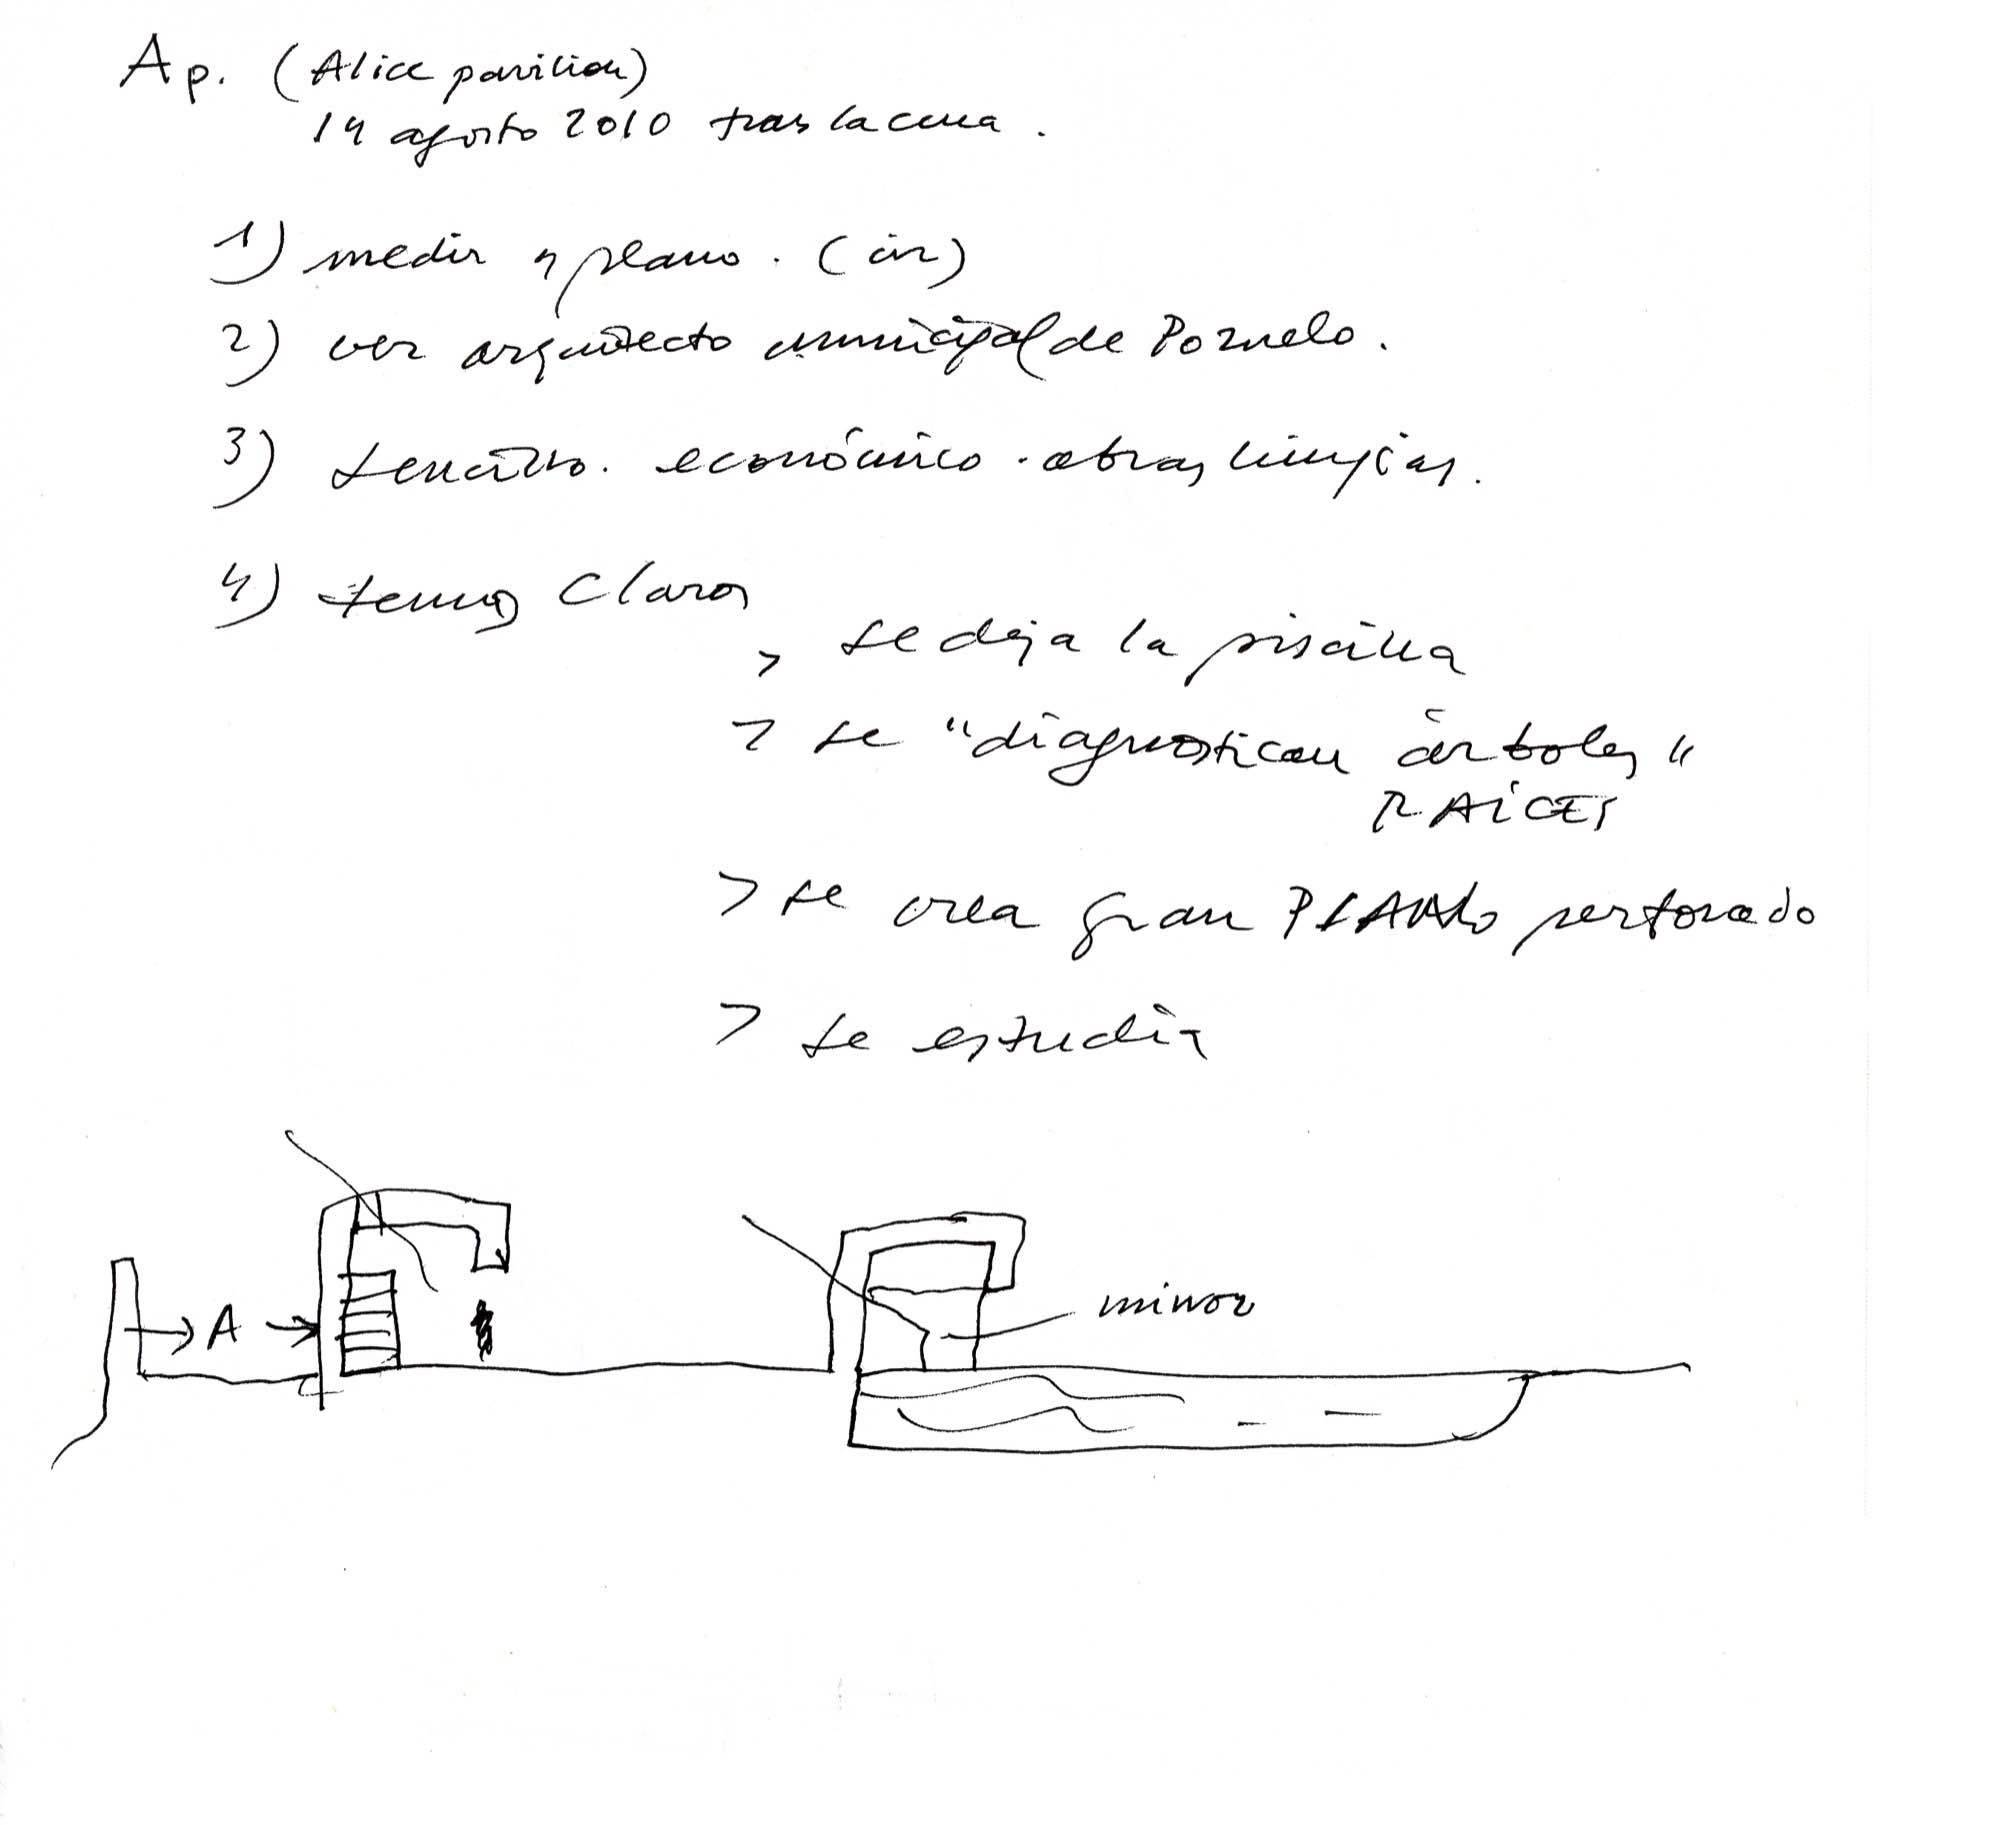 Ap. (Alice pavilion)
14 agosto 2010 tras la cena.
1) medir y plano. (ir)
2) ver arquitecto municipal de Pozuelo.
3) sencillo. económico. obras limpias.
4) temas claros
> se deja la piscina
> se "diagnostican árboles"
RAICES
> se crea gran PLANO perforado
> se estudia
A
mirror